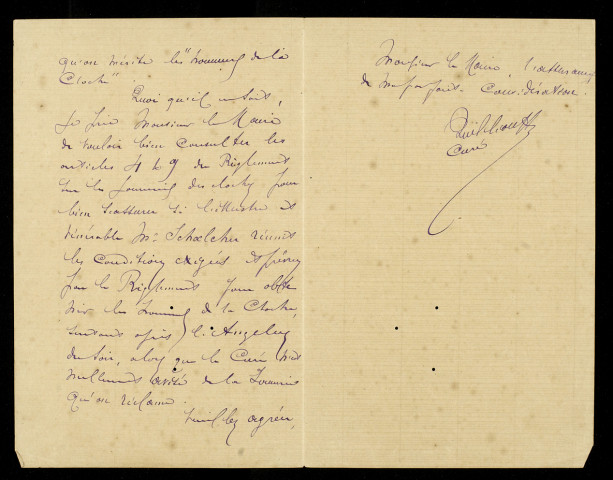 qu'on mérite les "honneurs de la
Cloche".
Quoi qu'il en soit,
Je prie Monsieur le Maire
de vouloir bien consulter les
articles 4 & 9 du Règlement
sur les sonneries des cloches pour
bien s'assurer si l'illustre et
vénérable Mr. Schoelcher réunit
les conditions exigées et prévues
par le Règlement pour obte
nir les honneurs de la Cloche,
surtout après l'Angelus
du soir, alors que le Curé n'est
nullement avisé de la sonnerie
qu'on réclame.
Veuillez agréer,
Monsieur le Maire, l'assurance
de ma parfaite Considération.
Curé